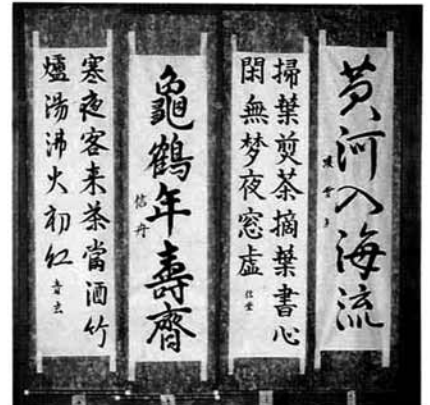 黄河入海流
掃葉煎茶摘葉書心
閑無梦夜窓虚
龜鶴年壽齊
信舟
寒夜客来茶當酒竹
爐湯沸火初紅